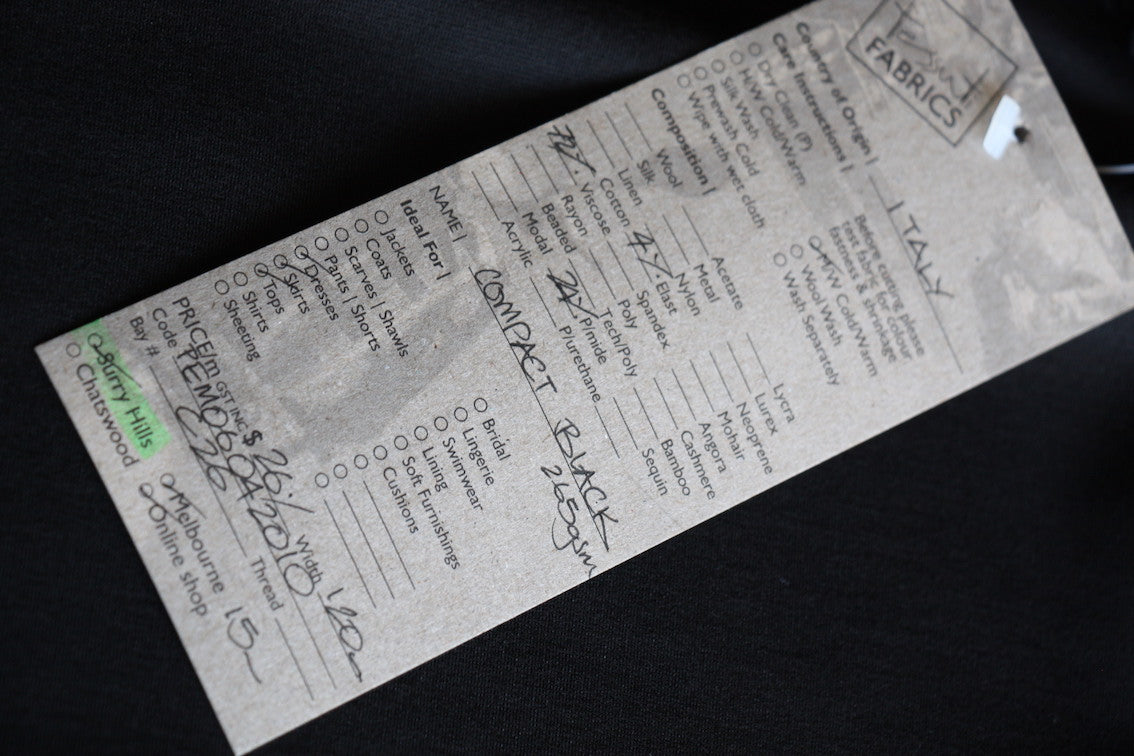 FABRICS
Country of Origin | ITALY
Care Instructions |
Before cutting please
test fabric for colour
fastness & shrinkage
Dry Clean (P)
H/W Cold/Warm
Silk Wash
Prewash Cold
Wipe with wet cloth
M/W Cold/Warm
Wool Wash
Wash Separately
Composition |
Wool
Silk
Linen
Cotton
72% Viscose
Rayon
Beaded
Modal
Acrylic
Acetate
Metal
Nylon
4% Elast
Spandex
Poly
Tech/Poly
24% P/mide
P/urethane
Lycra
Lurex
Neoprene
Mohair
Angora
Cashmere
Bamboo
Sequin
NAME | COMPACT BLACK
265gsm
Ideal For |
Jackets
Coats
Scarves | Shawls
Pants | Shorts
Dresses
Skirts
Tops
Shirts
Sheeting
Bridal
Lingerie
Swimwear
Lining
Soft Furnishings
Cushions
PRICE/m GST INC $ 26.- Width 120
Code TEM060A2010 Thread
Bay # 26
Surry Hills
Chatswood
Melbourne
Online shop
15